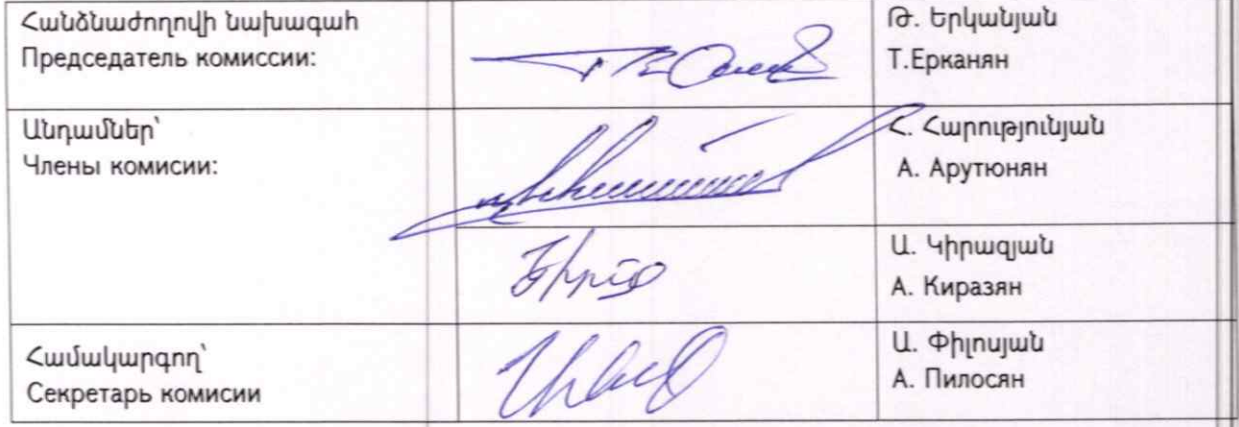 Հանձնաժողովի նախագահ
Председатель комиссии:
Թ. Երկանյան
Т.Ерканян
Անդամներ՝
Члены комисии:
Հ. Հարությունյան
А. Арутюнян
Ա. Կիրազյան
А. Киразян
Համակարգող՝
Секретарь комисии
Ա. Փիլոսյան
А. Пилосян